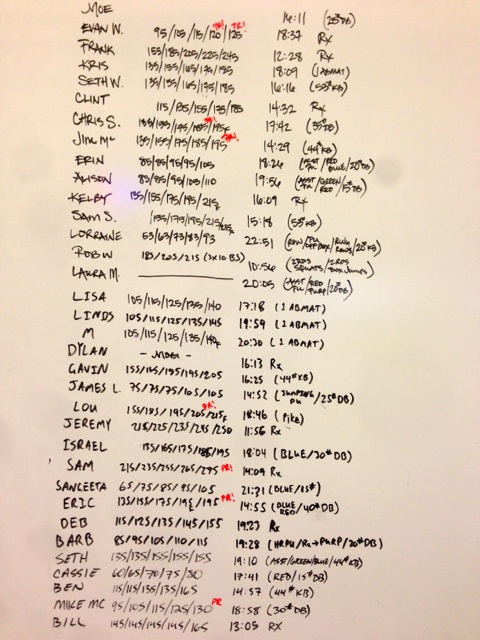 MOE 16:11 (25#DB)
EVAN W. 95/105/115/120/125 PR! PR! 18:37 Rx
FRANK 155/185/205/225/245 12:28 Rx
KRIS 135/155/165/175/185 18:09 (1ABMAT)
SETH W. 135/155/165/175/185 16:16 (55#KB)
CLINT 115/135/155/175/185 14:32 Rx
CHRIS S. 17:42 (35#DB)
JIM MC 135/155/175/185/195 PR! 14:29 (44#KB)
ERIN 85/85/95/95/105 18:26
ALISON 85/85/95/105/110 19:56
KELBY 135/155/175/195/215F 16:09 Rx
SAM S. 15:18 (55#KB)
LORRAINE 53/63/73/83/93 22:51
ROB W 185/205/215 (3x10 BS) 10:56
LAURA M. 20:05
LISA 105/115/125/135/140 17:18 (1 ABMAT)
LINDS 105/115/125/135/145 19:59 (1 ABMAT)
M 105/115/125/135/140F 20:30 (1 ABMAT)
DYLAN 16:13 Rx
GAVIN 155/165/185/195/205 16:25 (44#KB)
JAMES L. 75/75/75/105/105 14:52 (JUMPING PU/25#DB)
LOU 155/185/195/205/215F PR! 18:46 (Pike)
JEREMY 215/225/235/245/250 11:56 Rx
ISRAEL 135/165/175/185/195 18:04 (BLUE/30#DB)
SAM 215/235/255/265/275 PR! 14:09 Rx
SANGEETA 65/75/85/95/105 21:31 (BLUE/15#)
ERIC 135/155/175/195/195 PR! 14:55 (BLUE RED/40#DB)
DEB 115/125/135/145/155 19:23 Rx
BARB 85/95/105/110/115 19:28 (HRPU/Rx→PURP/20#DB)
SETH 135/135/155/155/155 19:10 (ASST/GREEN/BLUE/44#KB)
CASSIE 60/65/70/75/80 17:41 (RED/15#DB)
BEN 115/115/135/135/165 14:57 (44#KB)
MIKE MC 95/105/115/125/130 PR 18:58 (30#DB)
BILL 145/145/145/145/165 13:05 RX